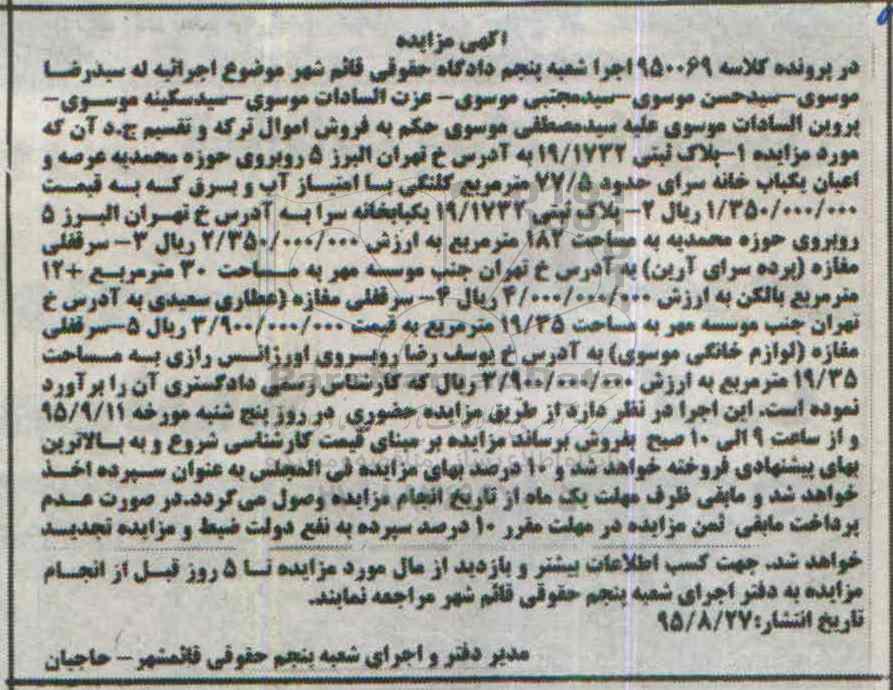 آگهی مزایده
در پرونده کلاسه ۹۵۰۰۶۹ اجرا شعبه پنجم دادگاه حقوقی قائم شهر موضوع اجرائیه له سیدرضا
موسوی-سیدحسن موسوی-سیدمجتبی موسوی- عزت السادات موسوی-سیدسکینه موسوی-
پروین السادات موسوی علیه سیدمصطفی موسوی حکم به فروش اموال ترکه و تقسیم ج.د آن که
مورد مزایده ۱-پلاک ثبتی ۱۹/۱۷۳۲ به آدرس خ تهران البرز ۵ روبروی حوزه محمدیه عرصه و
اعیان یکباب خانه سرای حدود ۷۷/۵ مترمربع کلنگی با امتیاز آب و برق که به قیمت
۱/۳۵۰/۰۰۰/۰۰۰ ریال ۲- پلاک ثبتی ۱۹/۱۷۳۲ یکبابخانه سرا به آدرس خ تهران البرز ۵
روبروی حوزه محمدیه به مساحت ۱۸۲ مترمربع به ارزش ۲/۳۵۰/۰۰۰/۰۰۰ ریال ۳- سرقفلی
مغازه (پرده سرای آرین) به آدرس خ تهران جنب موسسه مهر به مساحت ۳۰ مترمربع +۱۲
مترمربع بالکن به ارزش ۴/۰۰۰/۰۰۰/۰۰۰ ریال ۴- سرقفلی مغازه (عطاری سعیدی به آدرس خ
تهران جنب موسسه مهر به مساحت ۱۹/۳۵ مترمربع به قیمت ۳/۹۰۰/۰۰۰/۰۰۰ ریال ۵-سرقفلی
مغازه (لوازم خانگی موسوی) به آدرس خ یوسف رضا روبروی اورژانس رازی به مساحت
۱۹/۳۵ مترمربع به ارزش ۳/۹۰۰/۰۰۰/۰۰۰ ریال که کارشناس رسمی دادگستری آن را برآورد
نموده است. این اجرا در نظر دارد از طریق مزایده حضوری در روز پنج شنبه مورخه ۹۵/۹/۱۱
و از ساعت ۹ الی ۱۰ صبح بفروش برساند مزایده بر مبنای قیمت کارشناسی شروع و به بالاترین
بهای پیشنهادی فروخته خواهد شد و ۱۰ درصد بهای مزایده فی المجلس به عنوان سپرده اخذ
خواهد شد و مابقی ظرف مهلت یک ماه از تاریخ انجام مزایده وصول می گردد.در صورت عدم
پرداخت مابقی ثمن مزایده در مهلت مقرر ۱۰ درصد سپرده به نفع دولت ضبط و مزایده تجدید
خواهد شد. جهت کسب اطلاعات بیشتر و بازدید از مال مورد مزایده تا ۵ روز قبل از انجام
مزایده به دفتر اجرای شعبه پنجم حقوقی قائم شهر مراجعه نمایند.
تاریخ انتشار:۹۵/۸/۲۷
مدیر دفتر و اجرای شعبه پنجم حقوقی قائمشهر- حاجیان